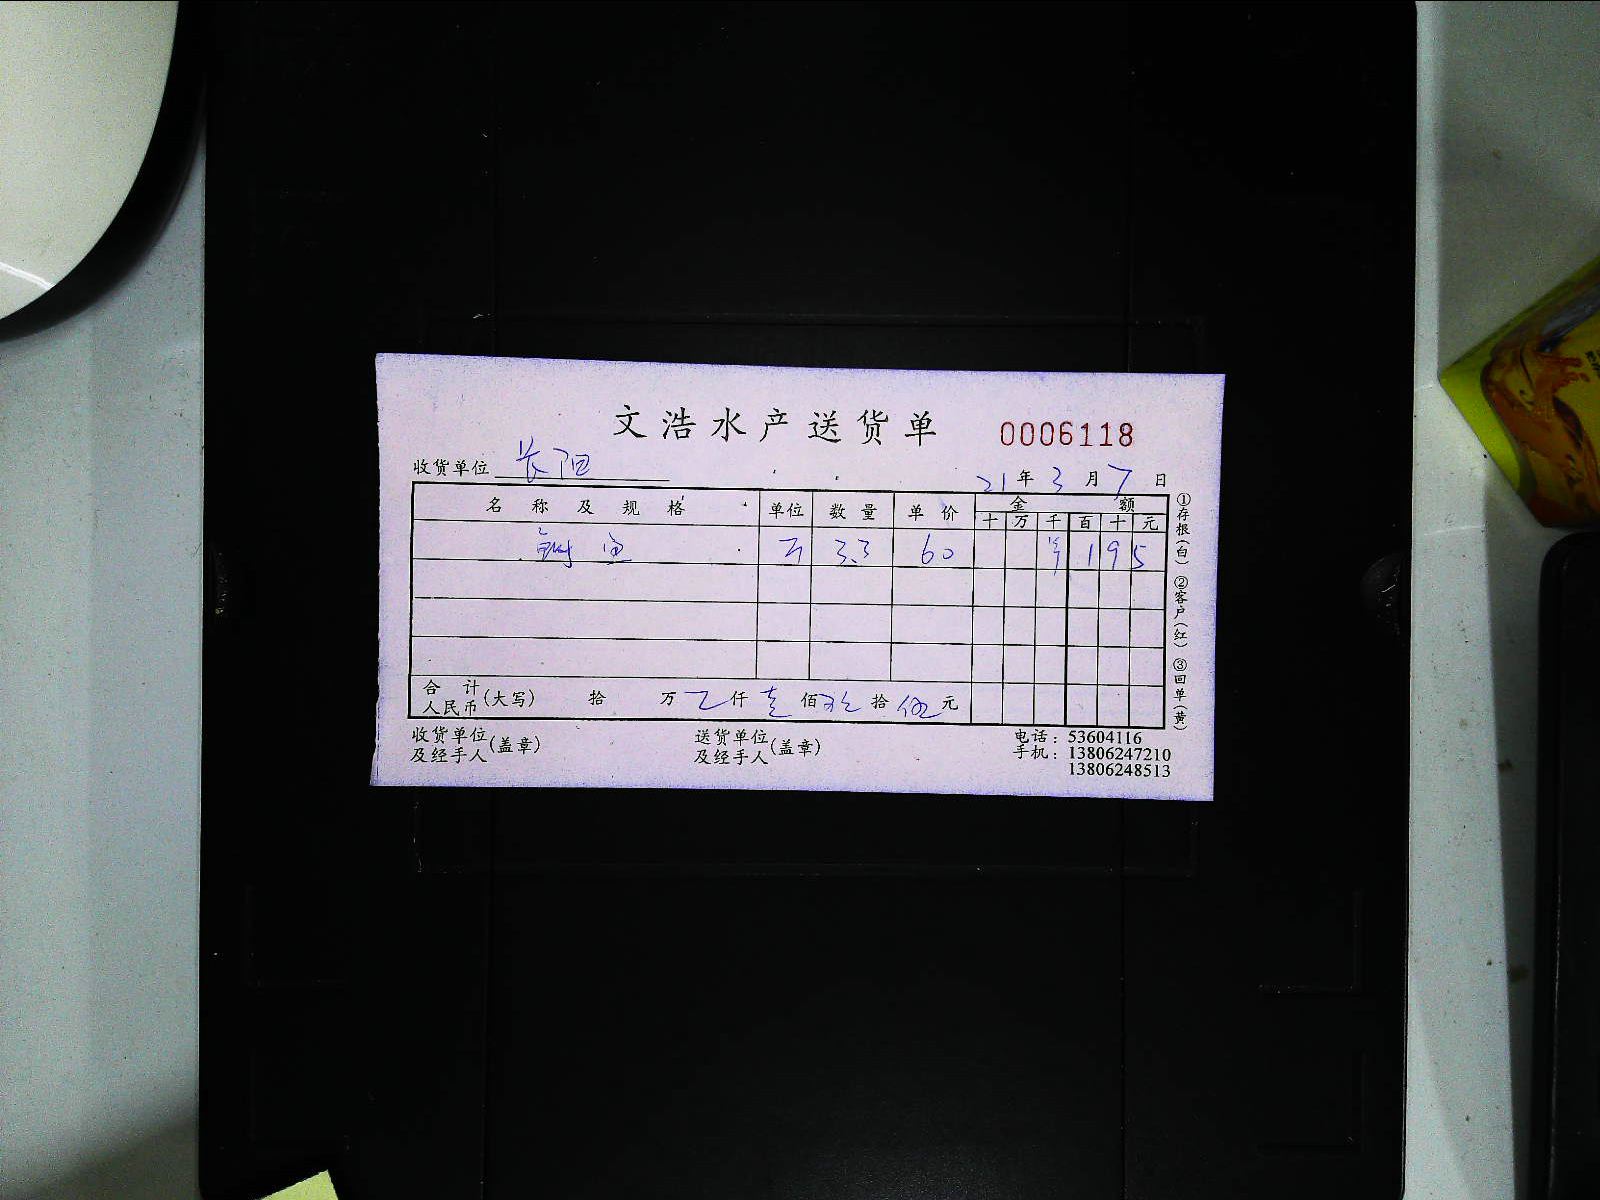 文浩水产送货单 0006118
收货单位 长阳 21年3月7日
名称及规格 单位 数量 单价 金额
十 万 千 百 十 元
鱼 斤 3.3 60 ¥ 1 9 5
合计人民币(大写) 拾 万 仟 壹佰 玖拾 伍元
收货单位及经手人(盖章) 送货单位及经手人(盖章) 电话:53604116
手机:13806247210
13806248513
①存根(白) ②客户(红) ③回单(黄)